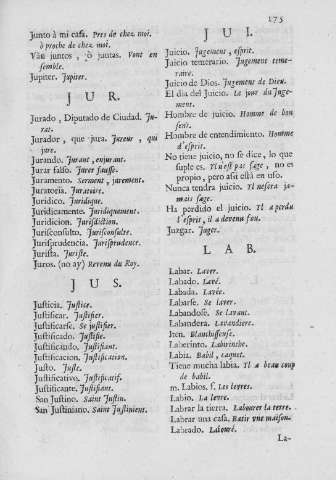 175
Junto à mi casa. Pres de chez moi.
ò proche de chez moi.
Vàn juntos, ò juntas. Vont en
semble.
Jupiter. Jupiter.
JUR.
Jurado, Diputado de Ciudad. Ju-
rat.
Jurador, que jura. Jureur, qui
jure.
Jurando. Jurant, enjurant.
Jurar falso. Jurer fausse.
Juramento. Serment, jurement.
Juratoria. Juratoire.
Juridico. Juridique.
Juridicamente. Juridiquement.
Juridicion. Jurisdiction.
Jurisconsulto. Jurisconsulte.
Jurisprudencia. Jurisprudence.
Jurista. Juriste.
Juros. (no ay) Revenu du Roy.
JUS.
Justicia. Justice.
Justificar. Justifier.
Justificarse. Se justifier.
Justificado. Justifié.
Justificando. Justifiant.
Justificacion. Justification.
Justo. Juste.
Justificativo. Justificatif.
Justificante. Justifiant.
San Justino. Saint Justin.
San Justiniano. Saint Justinient.
JUI.
Juicio. Jugement, esprit.
Juicio temerario. Jugement teme-
raire.
Juicio de Dios. Jugement de Dieu.
El dia del Juicio. Le jour du Juge-
ment.
Hombre de juicio. Homme de bon
sens.
Hombre de entendimiento. Homme
d'esprit.
No tiene juicio, no se dice, lo que
suple es. Il n'est pas sage, no es
propio, pero assi està en uso.
Nunca tendra juicio. Il ne sera ja-
mais sage.
Ha perdido el juicio. Il a perdu
l'esprit, il a devenu fou.
Juzgar. Juger.
LAB.
Labar. Laver.
Labado. Lavé.
Labada. Lavée.
Labarse. Se laver.
Labandose. Se lavant.
Labandera. Lavandiere.
Iten. Blanchisseuse.
Laberinto. Labirinthe.
Labia. Babil, caquet.
Tiene mucha labia. Il a beau coup
de babil.
m. Labios. f. Les levres.
Labio. La levre.
Labrar la tierra. Labourer la terre.
Labrar una casa. Batir une maison.
Labrado. Labouré.
La-